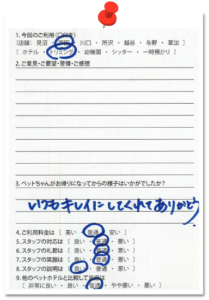 1.今回のご利用
[店舗: 見沼 ・ 戸田 ・ 川口 ・ 所沢 ・ 越谷 ・ 与野 ・ 草加 ]
[ ホテル ・ トリミング ・ 幼稚園 ・ シッター ・ 一時預かり ]
2.ご意見・ご要望・苦情・ご感想
3.ペットちゃんがお帰りになってからの様子はいかがでしたか?
いつもキレイにしてくれてありがとう
4.ご利用料金は [ 高い ・ 普通 ・ 安い ]
5.スタッフの対応は [ 良い ・ 普通 ・ 悪い ]
6.スタッフの礼節は [ 良い ・ 普通 ・ 悪い ]
7.スタッフの笑顔は [ 良い ・ 普通 ・ 悪い ]
8.スタッフの説明は [ 良い ・ 普通 ・ 悪い ]
9.他のペットホテルと比較して当店は
[ 非常に良い ・ 良い ・ 普通 ・ やや悪い ・ 悪い ]